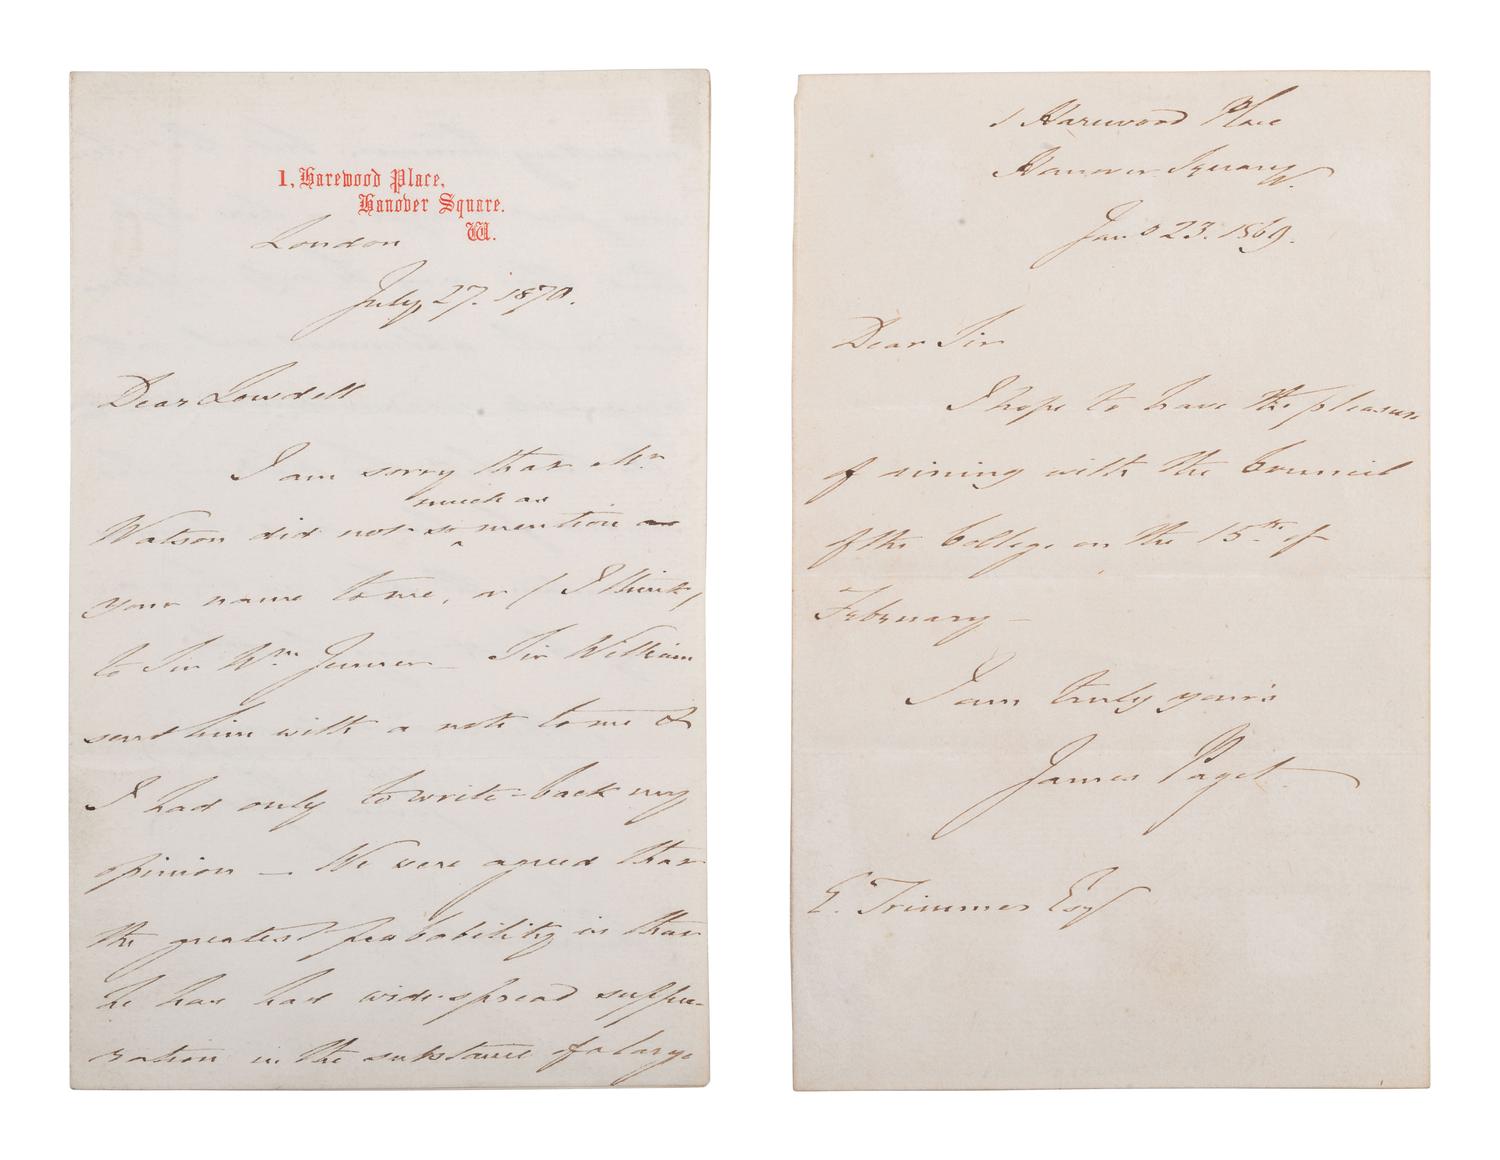 1, Harewood Place,
Hanover Square.
W.
London
July 27. 1870.
Dear Lowdell
I am sorry that Mr
much as
Watson did not so mention as
your name to me, or (I think)
to Sir Wm Jenner — Sir William
send him with a note to me &
I had only to write-back my
opinion — We were agreed that
the greatest probability is that
he has had wide-spread suppu-
ration in the substance of a large
1 Harewood Place
Hanover Square W.
Jan 23. 1869.
Dear Sir
I hope to have the pleasure
of dining with the Council
of the College on the 15th of
February —
I am truly your's
James Paget
E. Trimmer Esq